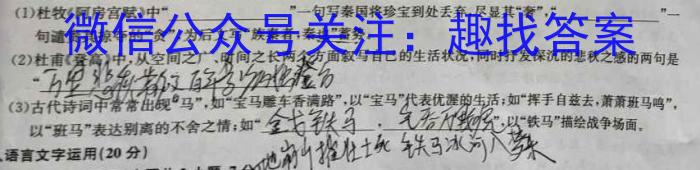 (1)杜牧《阿房宫赋》中“ ”一句写秦国将珍宝到处丢弃,尽显其“奢”,“ ”一
微信公众号关注:趣找答案
(2)杜甫《登高》中,从空间之广、时间之长两个方面叙写自己的生活状况,同时抒发深沉的悲秋之感的两句是
“万里悲秋常作客 百年多病独登台
(3)古代诗词中常常出现“马”,如“宝马雕车香满路”,以“宝马”代表优渥的生活;如“挥手自兹去,萧萧班马鸣”,
以“班马”表达别离的不舍之情;如“金戈铁马,气吞万里 ”,以“铁马”描绘战争场面。
铁马冰河入梦来
、语言文字运用(20分)